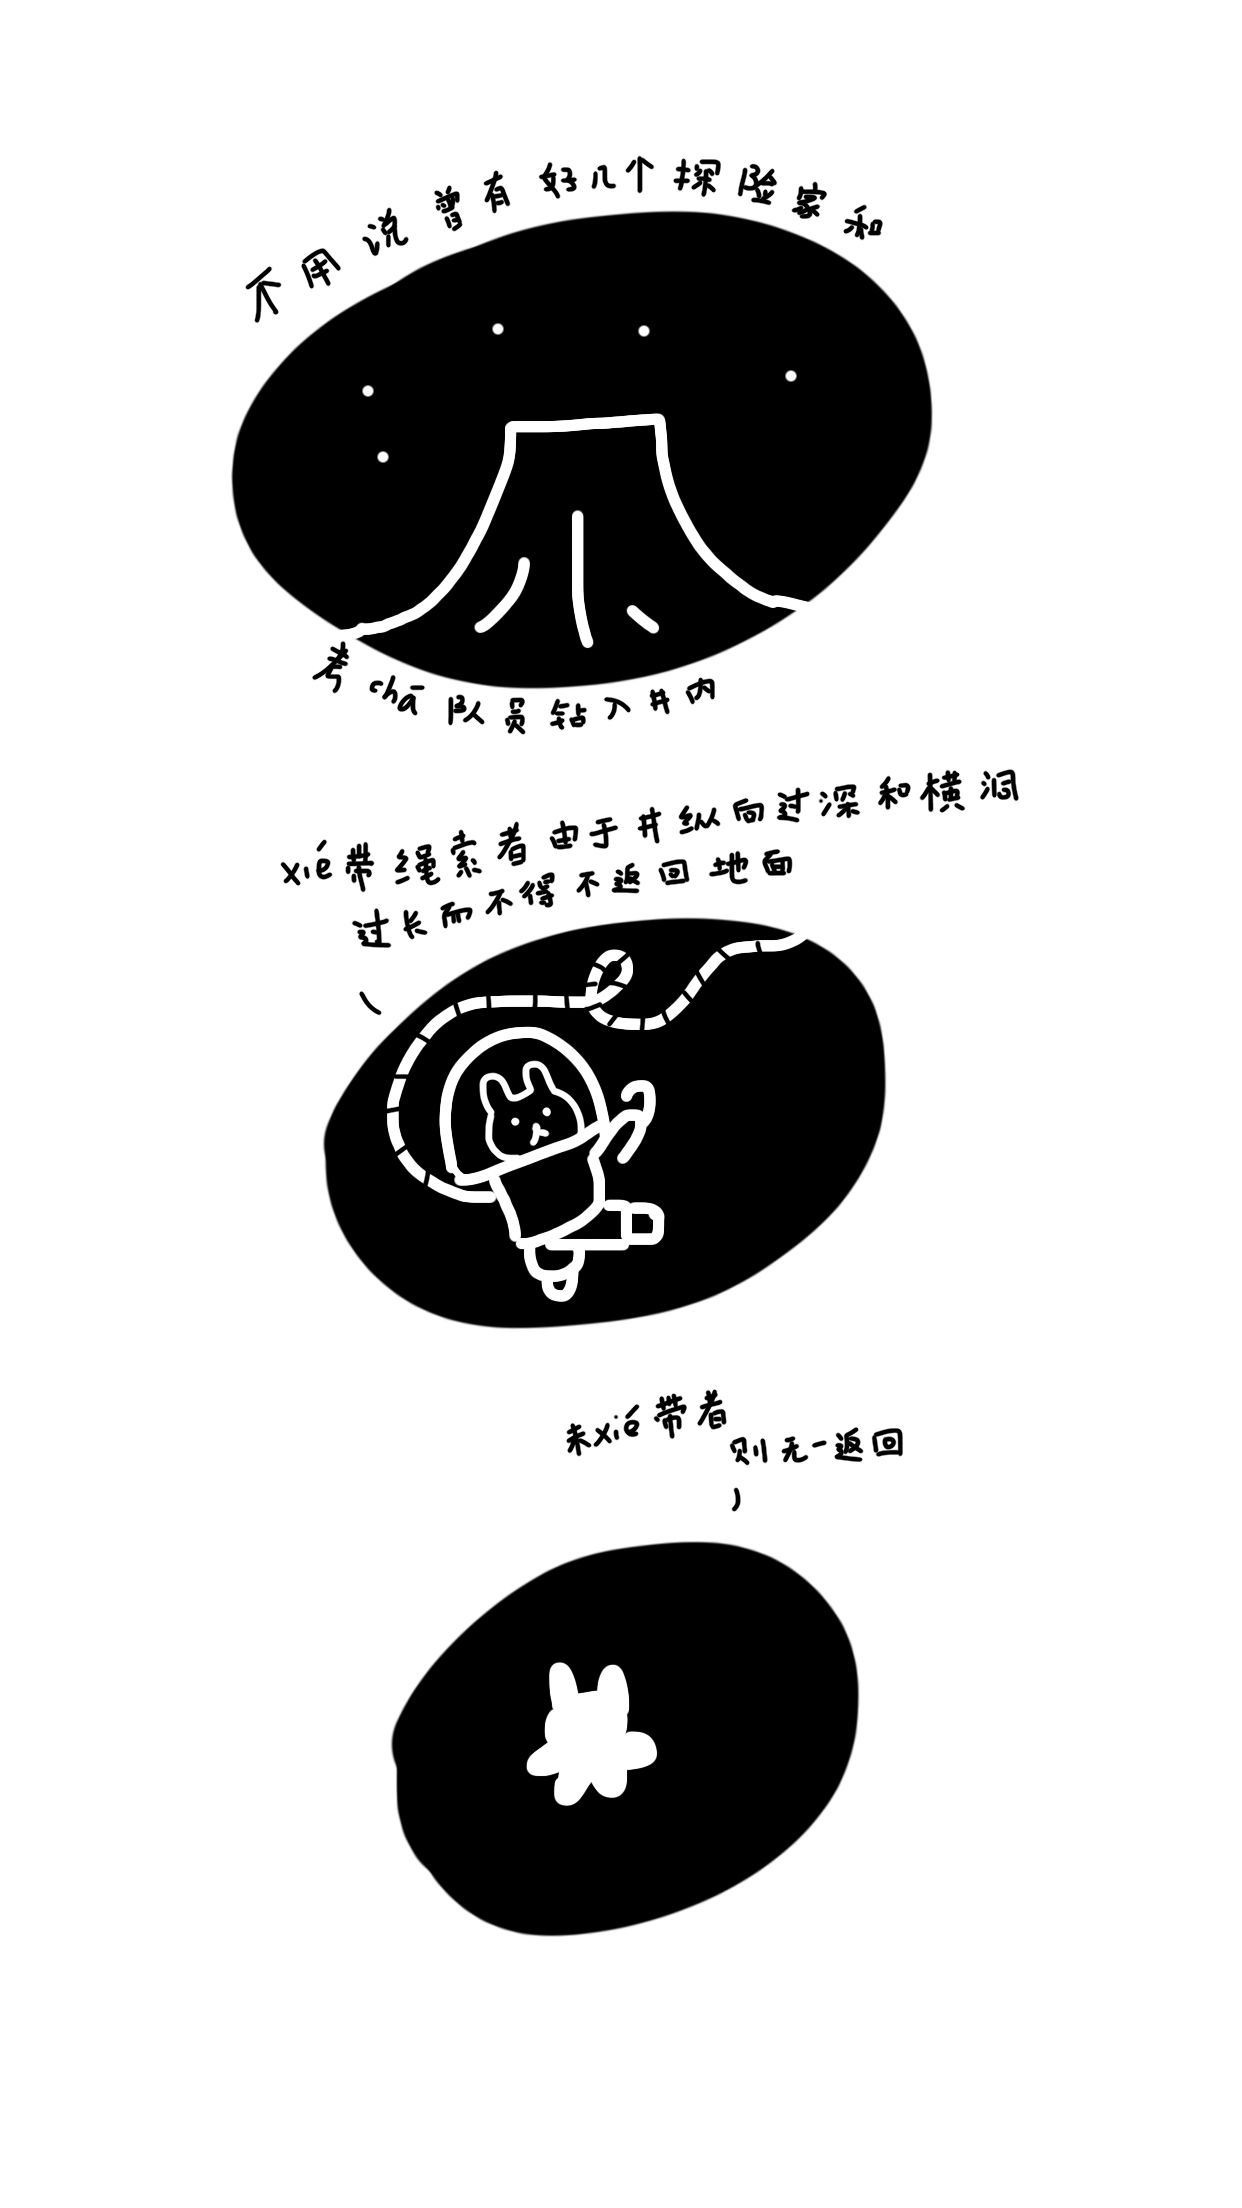 不用说曾有好几个探险家和
考chā队员钻入井内
xié带绳索者由于井纵向过深和横洞
过长而不得不返回地面
未xié带者
则无一返回